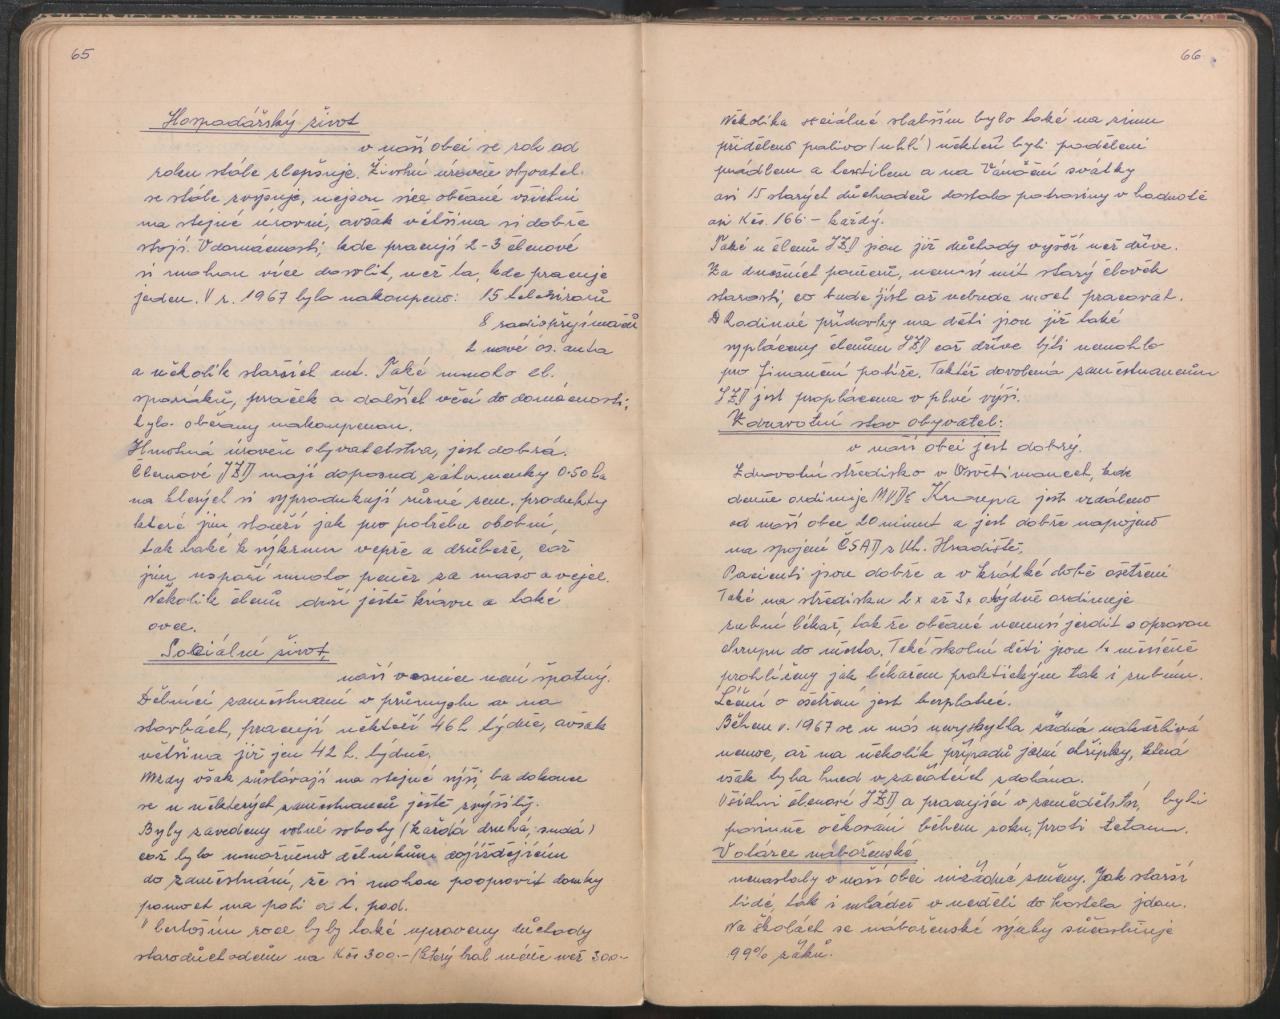 65
Hospodářský život
v naší obci se rok od
roku stále zlepšuje. Životní úroveň obyvatel.
se stále zvyšuje, nejsou sice občané všichni
na stejné úrovni, avšak většina si dobře
stojí. V domácnosti, kde pracují 2-3 členové
si mohou více dovolit, než ta, kde pracuje
jeden. V r. 1967 bylo nakoupeno: 15 televizorů
8 radiopřijímačů
2 nové os. auta
a několik starších aut. Také mnoho el.
sporáků, praček a dalších věcí do domácnosti,
bylo občany nakoupenou.
Hmotná úroveň obyvatelstva, jest dobrá.
Členové JZD mají doposud záhumenky 0.50 ha
na kterých si vyprodukují různé zem. produkty
které jim slouží jak pro potřebu osobní,
tak také k výkrmu vepře a drůbeže, což
jim uspoří mnoho peněz za maso a vejce.
Několik členů drží ještě krávu a také
ovce.
Sociální život,
naší vesnice není špatný.
Dělníci zaměstnaní v průmyslu a na
stavbách, pracují někteří 46 h týdně, avšak
většina již jen 42 h. týdně.
Mzdy však zůstávají na stejné výši, ba dokonce
se u některých zaměstnanců ještě zvýšily.
Byly zavedeny volné soboty (každá druhá, sudá)
což bylo umožněno dělníkům dojíždějícím
do zaměstnání, že si mohou poopravit domky
pomoct na poli a t. pod.
V letošním roce byly také upraveny důchody
starodůchodcům na Kčs 300.- (který bral méně než 300.-
66
Několika sociálně slabším bylo také na zimu
přiděleno palivo (uhlí) někteří byli poděleni
prádlem a textilem a na Vánoční svátky
asi 15 starých důchodců dostalo potraviny v hodnotě
asi Kčs. 166.- každý.
Také u členů JZD jsou již důchody vyšší než dříve.
Za dnešních poměrů, nemusí mít starý člověk
starosti, co bude jíst až nebude moct pracovat.
Rodinné přídavky na děti jsou již také
vypláceny členům JZD což dříve býti nemohlo
pro finanční potíže. Taktéž dovolená zaměstnancům
JZD jest proplácena v plné výši.
Zdravotní stav obyvatel:
v naší obci jest dobrý.
Zdravotní středisko v Osvětimanech, kde
denně ordinuje MUDr Krampa jest vzdáleno
od naší obce 20 minut a jest dobře napojeno
na spojení ČSAD z Uh. Hradiště.
Pacienti jsou dobře a v krátké době ošetřeni
Také na středisku 2x až 3x týdně ordinuje
zubní lékař, tak že občané nemusí jezdit s opravou
chrupu do města. Také školní děti jsou 1x měsíčně
prohlíženy jak lékařem praktickým tak i zubním.
Léčení o ošetření jest bezplatné.
Během r. 1967 se u nás nevyskytla žádná nakažlivá
nemoc, až na několik případů jarní chřipky, která
však byla hned v začátcích zdolána.
Všichni členové JZD a pracující v zemědělství, byli
povinně očkováni během roku, proti tetanu.
V otázce náboženské
nenastaly v naší obci nižádné změny. Jak starší
lidé, tak i mládež v neděli do kostela jdou.
Na školách se náboženské výuky súčastňuje
99% žáků.